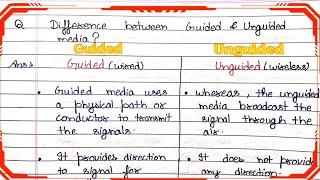 Q Difference between Guided & Unguided
media?
Guided Unguided
Ans→ Guided (wired) Unguided (wireless)
• Guided media uses • whereas, the unguided
a physical path or media broadcast the
conductor to transmit signal through the
the signals. air.
• It provides direction • It does not provide
to signal for any direction.